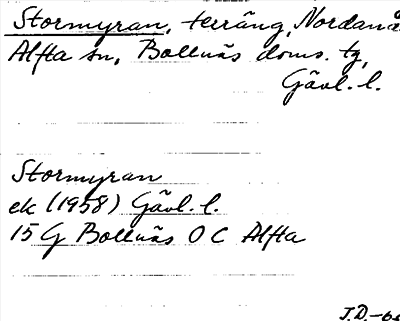 Stormyran, terräng, Nordanå
Alfta sn, Bollnäs doms. tg,
Gävl. l.
Stormyran
ek (1958) Gävl. l.
15 G Bollnäs O C Alfta
J.D.